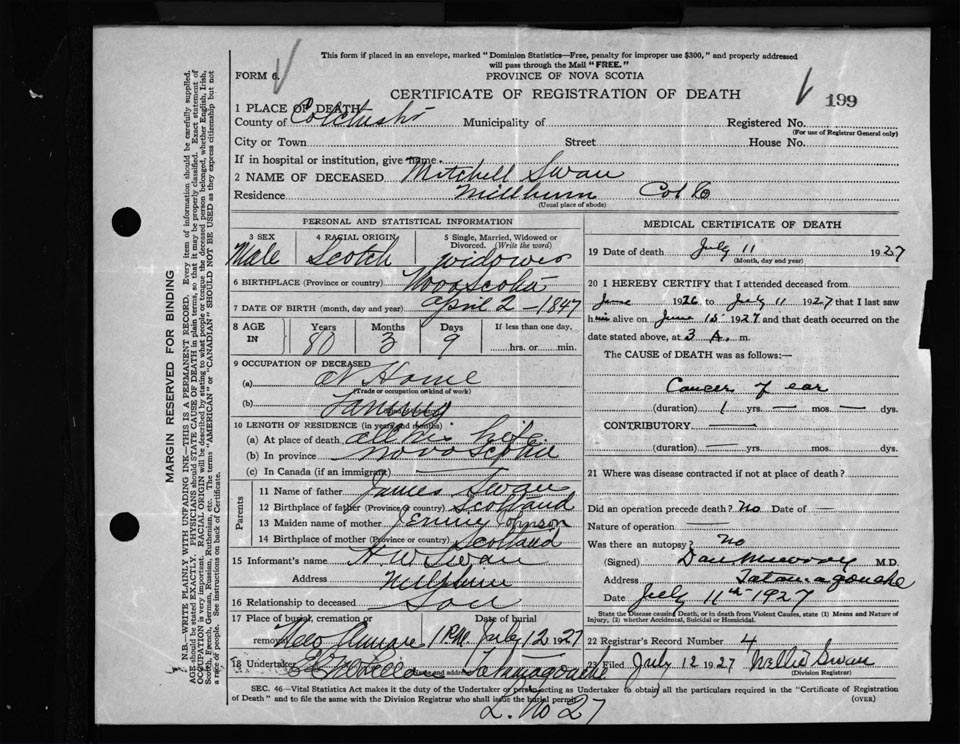 This form if placed in an envelope, marked "Dominion Statistics—Free, penalty for improper use $300," and properly addressed
will pass through the Mail "FREE."
FORM 6.
PROVINCE OF NOVA SCOTIA
CERTIFICATE OF REGISTRATION OF DEATH
199
1 PLACE OF DEATH
County of Colchester Municipality of Registered No.
(For use of Registrar General only)
City or Town Street House No.
If in hospital or institution, give name.
2 NAME OF DECEASED Mitchell Swan
Residence Col Co
(Usual place of abode)
PERSONAL AND STATISTICAL INFORMATION
3 SEX 4 RACIAL ORIGIN 5 Single, Married, Widowed or Divorced. (Write the word)
Male Scotch widower
6 BIRTHPLACE (Province or country) Nova Scotia
7 DATE OF BIRTH (month, day and year) April 2 - 1847
8 AGE IN Years Months Days If less than one day,
80 3 9 hrs. or min.
9 OCCUPATION OF DECEASED
(a) at Home
(Trade or occupation or kind of work)
(b) Farming
10 LENGTH OF RESIDENCE (in years and months)
(a) At place of death all his life
(b) In province Nova Scotia
(c) In Canada (if an immigrant)
Parents
11 Name of father James Swan
12 Birthplace of father (Province or country) Scotland
13 Maiden name of mother Jenny Johnson
14 Birthplace of mother (Province or country) Scotland
15 Informant's name H W Swan
Address
16 Relationship to deceased Son
17 Place of burial, cremation or removal Date of burial
July 12 1927
18 Undertaker and address Tatamagouche
MEDICAL CERTIFICATE OF DEATH
19 Date of death July 11 1927
(Month, day and year)
20 I HEREBY CERTIFY that I attended deceased from
June 1926 to July 11 1927 that I last saw
him alive on June 15 1927 and that death occurred on the
date stated above, at 3 A. m.
The CAUSE of DEATH was as follows:—
Cancer of ear
(duration) 1 yrs. — mos. — dys.
CONTRIBUTORY —
(duration) — yrs. mos. dys.
21 Where was disease contracted if not at place of death?
Did an operation precede death? No Date of —
Nature of operation —
Was there an autopsy? No
(Signed) Dan M.D.
Address Tatamagouche
Date July 11th 1927
State the Disease causing Death, or in death from Violent Causes, state (1) Means and Nature of
Injury, (2) whether Accidental, Suicidal or Homicidal.
22 Registrar's Record Number 4
23 Filed July 12 1927 Nellie Swan
(Division Registrar)
SEC. 46—Vital Statistics Act makes it the duty of the Undertaker or person acting as Undertaker to obtain all the particulars required in the "Certificate of Registration
of Death" and to file the same with the Division Registrar who shall issue the burial permit.
(OVER)
2. No 27
MARGIN RESERVED FOR BINDING
N.B.—WRITE PLAINLY WITH UNFADING INK—THIS IS A PERMANENT RECORD. Every item of information should be carefully supplied.
AGE should be stated EXACTLY. PHYSICIANS should STATE CAUSE OF DEATH in plain terms, so that it may be properly classified. Exact statement of
OCCUPATION is very important. RACIAL ORIGIN will be described by stating to what people or tongue the deceased person belonged, whether English, Irish,
Scotch, French, German, Russian, Ruthenian, etc. The terms "AMERICAN" or "CANADIAN" SHOULD NOT BE USED as they express citizenship but not
a race or people. See instructions on back of Certificate.